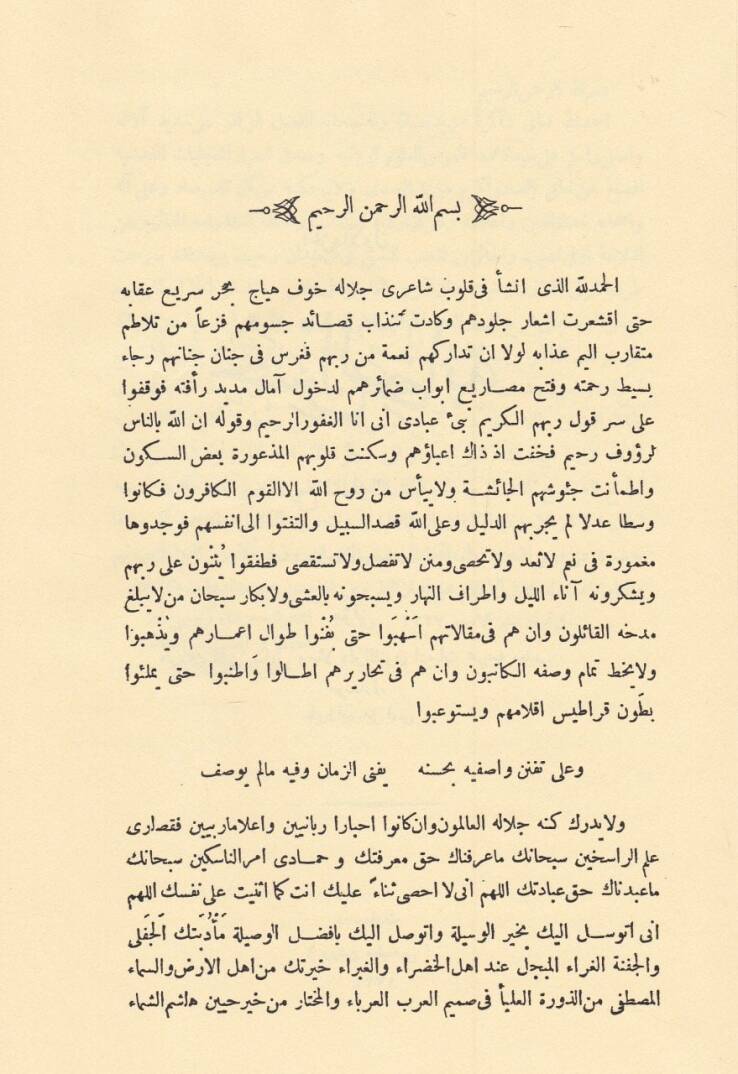 بسم الله الرحمن الرحيم
الحمدلله الذى انشأ فى قلوب شاعرى جلاله خوف هياج بحر سريع عقابه
حتى اقشعرت اشعار جلودهم وكادت تنذاب قصائد جسومهم فزعاً من تلاطم
متقارب اليم عذابه لولا ان تداركهم نعمة من ربهم فغرس فى جنان جنانهم رجاء
بسيط رحمته وفتح مصاريع ابواب ضمائرهم لدخول آمال مديد رأفته فوقفوا
على سر قول ربهم الكريم نبئ عبادى انى انا الغفور الرحيم وقوله ان الله بالناس
لرؤوف رحيم فخفت اذ ذاك اعباؤهم وسكنت قلوبهم المذعورة بعض السكون
واطمأنت جئوشهم الجائشة ولاييأس من روح الله الاالقوم الكافرون فكانوا
وسطا عدلا لم يجربهم الدليل وعلى الله قصد السبيل والتفتوا الى انفسهم فوجدوها
مغمورة فى نعم لاتعد ولاتحصى ومنن لاتفصل ولاتستقصى فطفقوا يُثنْون على ربهم
ويشكرونه آناء الليل واطراف النهار ويسبحونه بالعشى ولابكار سبحان من لايبلغ
مدحه القائلون وان هم فى مقالاتهم اَسْهبَوا حتى يُفْنوا طوال اعمارهم ويُذْهبوا
ولايخط تمام وصفه الكاتبون وان هم فى تحاريرهم اطالوا وَاطنبوا حتى يملئوا
بطون قراطيس اقلامهم ويستوعبوا
وعلى تفنن واصفيه بحسنه يفنى الزمان وفيه مالم يوصف
ولايدرك كنه جلاله العالمون وان كانوا احبارا ربانيين واعلاماربيين فقصارى
علم الراسخين سبحانك ماعرفناك حق معرفتك وحمادى امر الناسكين سبحانك
ماعبدناك حق عبادتك اللهم انى لا احصى ثناءً عليك انت كما اثنيت على نفسك اللهم
انى اتوسل اليك بخير الوسيلة واتوصل اليك بافضل الوصيلة مَأْدُبَتك اَلجَفَلى
والجفنة الغراء المبجل عند اهل الخضراء والغبراء خيرتك من اهل الارض والسماء
المصطفى من الذورة العليأ فى صميم العرب العرباء والمختار من خير حيين هاشم الشماء